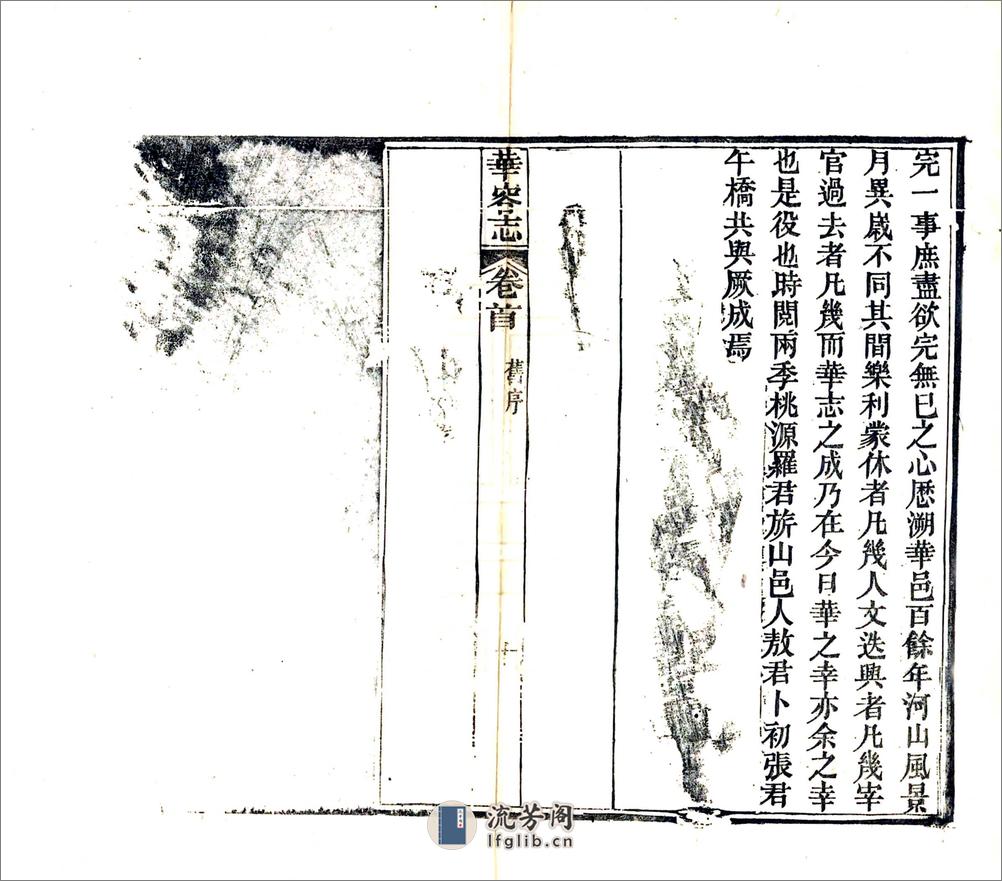 完一事庶盡欲完無已之心歷溯華邑百餘年河山風景
月異歲不同其間樂利蒙休者凡幾人文迭興者凡幾宰
官過去者凡幾而華志之成乃在今日華之幸亦余之幸
也是役也時閱兩季桃源羅君旂山邑人敖君卜初張君
午橋共與厥成焉
華容志
卷首
舊序
十
流芳阁
lfglib.cn